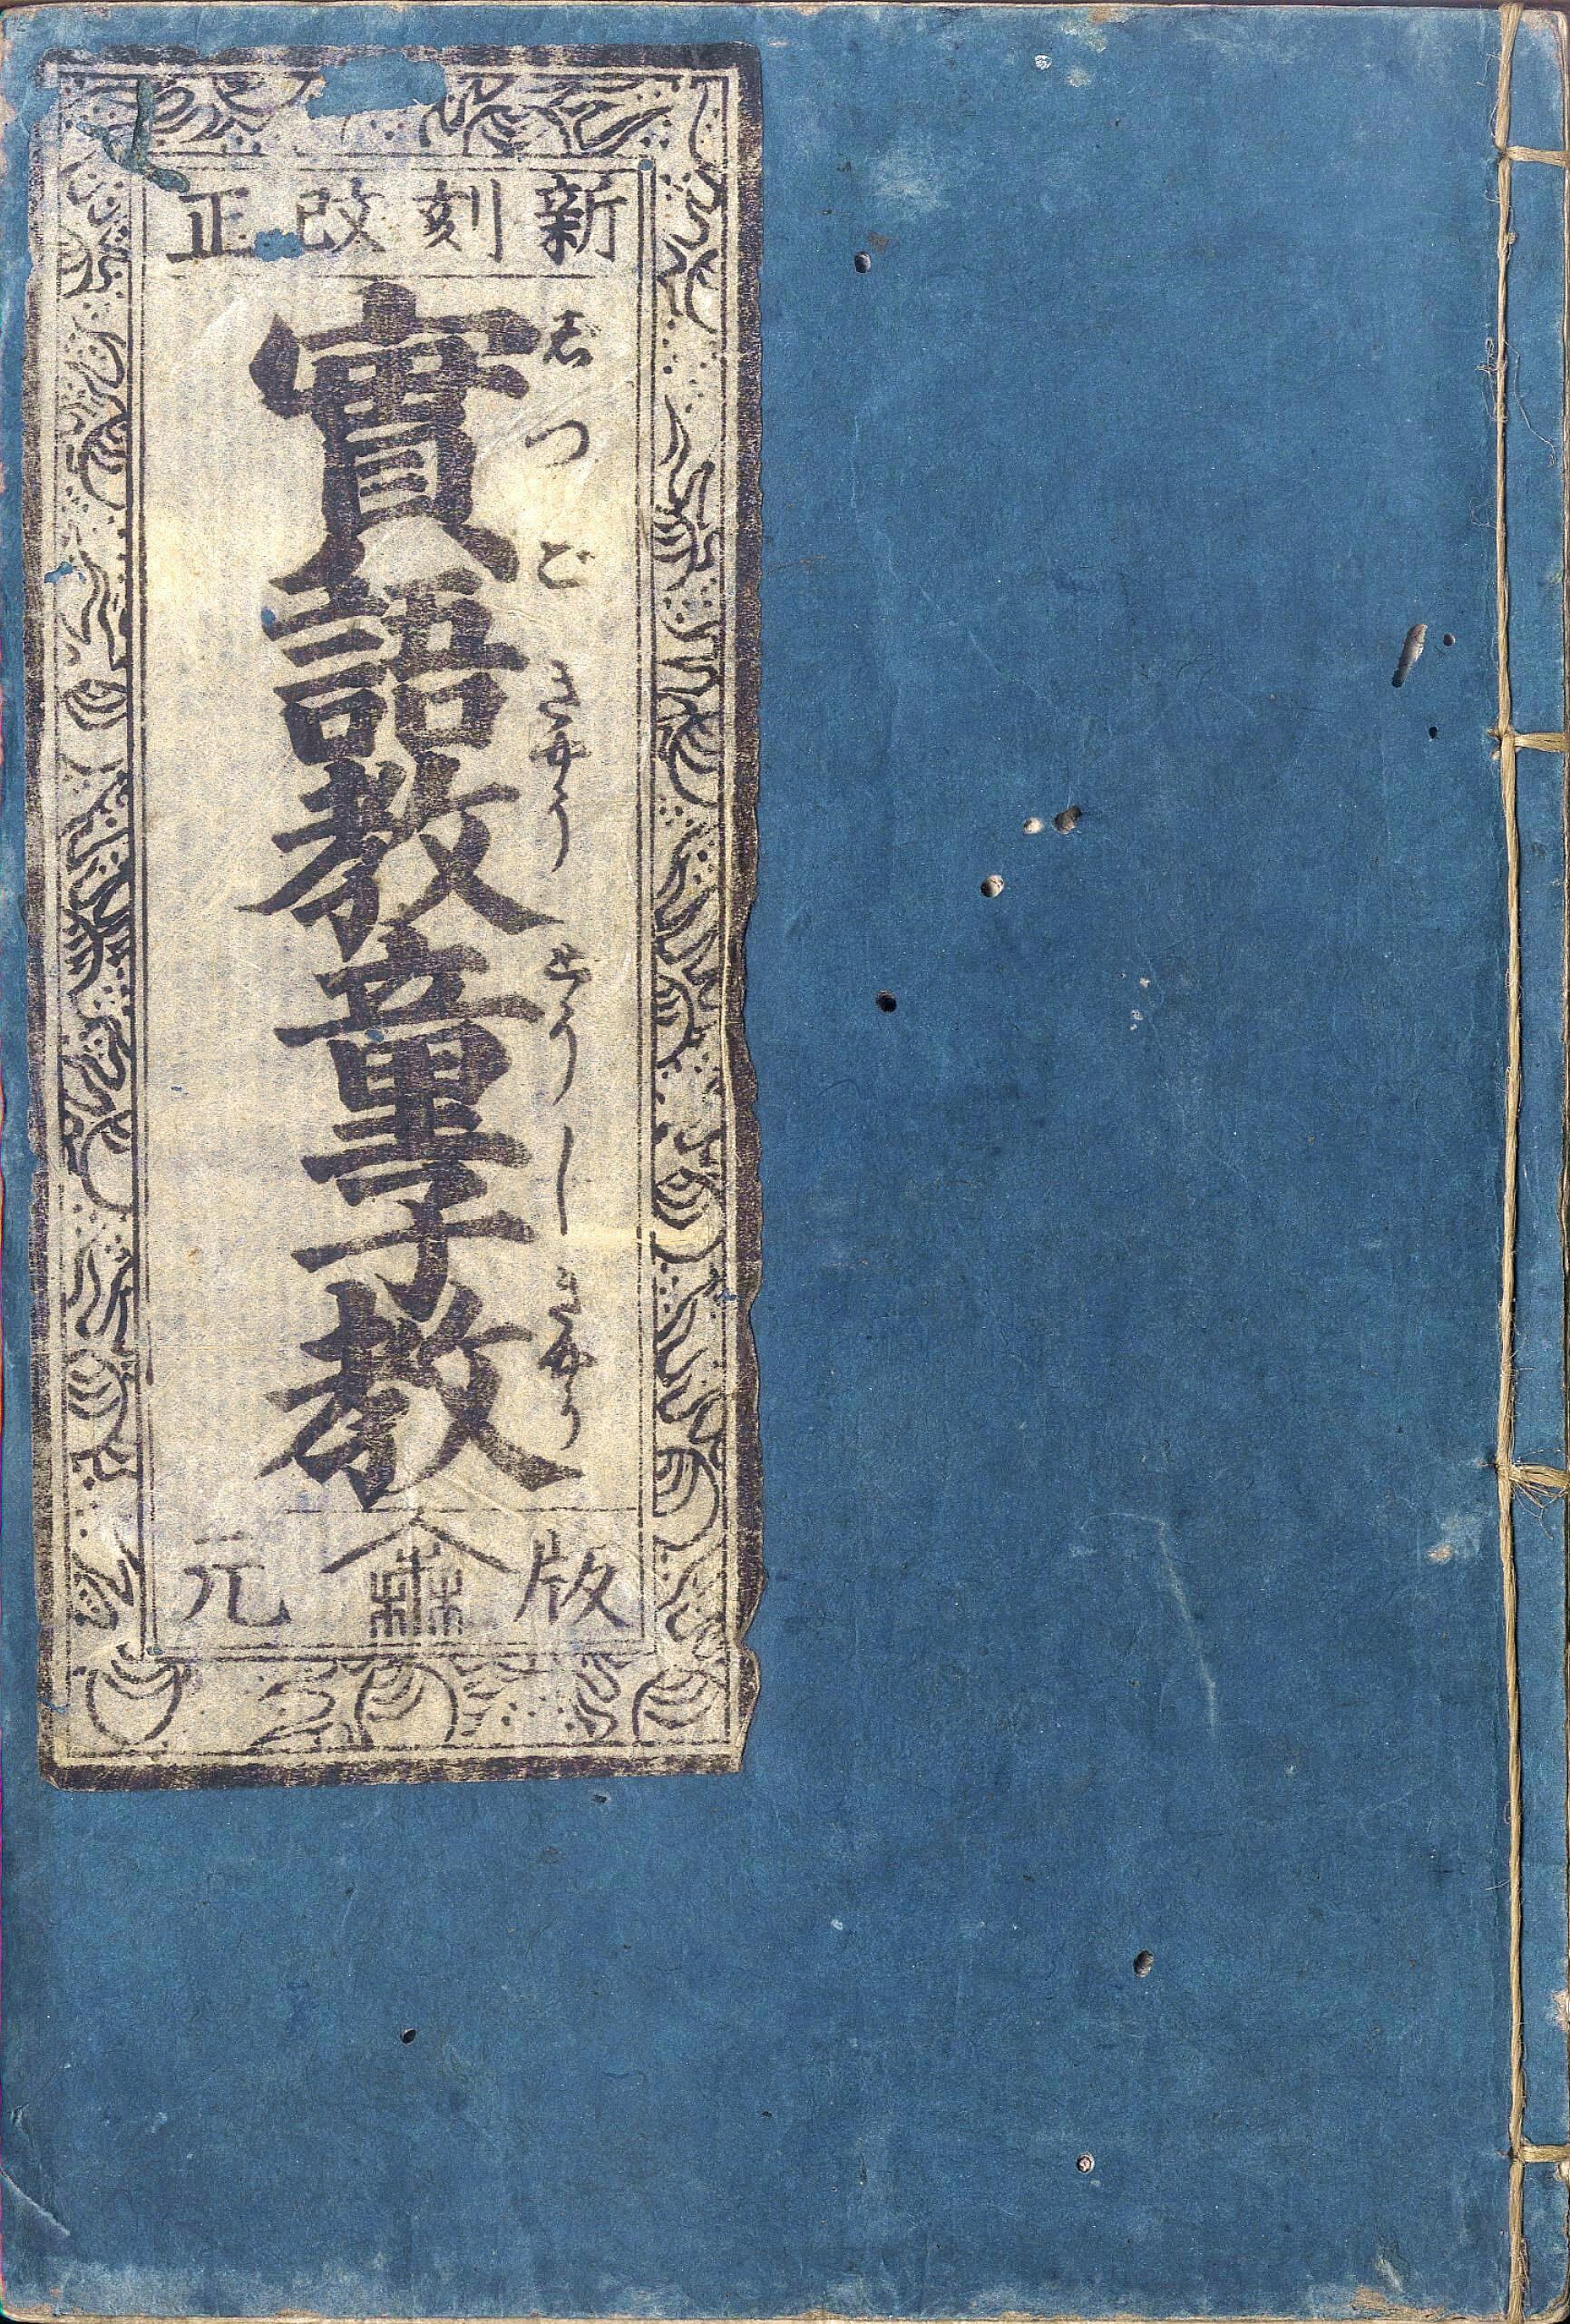 新刻改正
實語教童子教
じつごきやうどうじきやう
版元